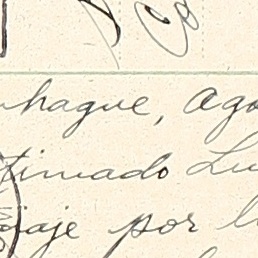 Co
hague, Ago
timado Lu
iaje por l